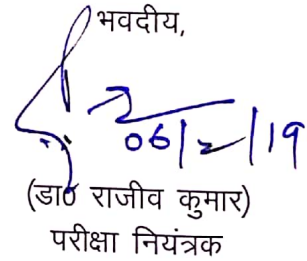 भवदीय,
06/2/19
(डा० राजीव कुमार)
परीक्षा नियंत्रक